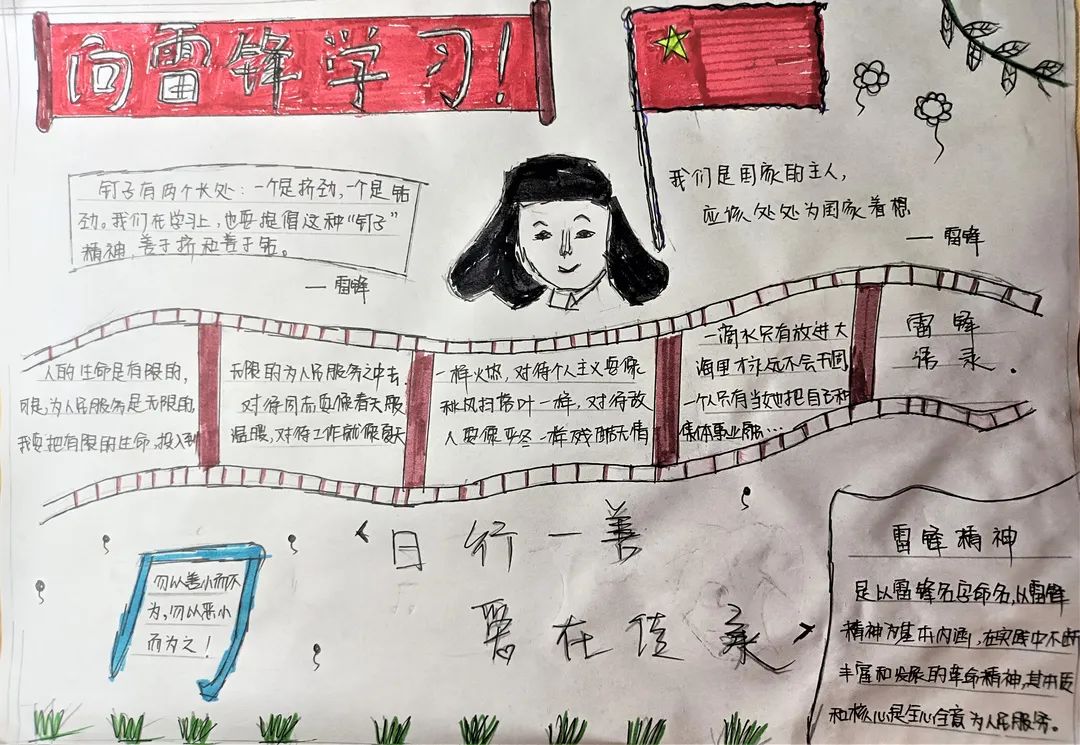 向雷锋学习!
钉子有两个长处:一个是挤劲,一个是钻
劲。我们在学习上,也要提倡这种“钉子”
精神,善于挤和善于钻。
—雷锋
我们是国家的主人,
应该处处为国家着想
—雷锋
人的生命是有限的,
可是,为人民服务是无限的,
我要把有限的生命,投入到
无限的为人民服务之中去,
对待同志要像春天般
温暖,对待工作就像夏天
一样火热,对待个人主义要像
秋风扫落叶一样,对待敌
人要像严冬一样残酷无情
一滴水只有放进大
海里才永远不会干涸
一个人只有当他把自己和
集体事业融…
雷锋
语录.
日行一善
爱在传承
勿以善小而不
为,勿以恶小
而为之!
雷锋精神
是以雷锋名字命名,以雷锋
精神为基本内涵,在实践中不断
丰富和发展的革命精神,其本质
和核心是全心全意为人民服务。